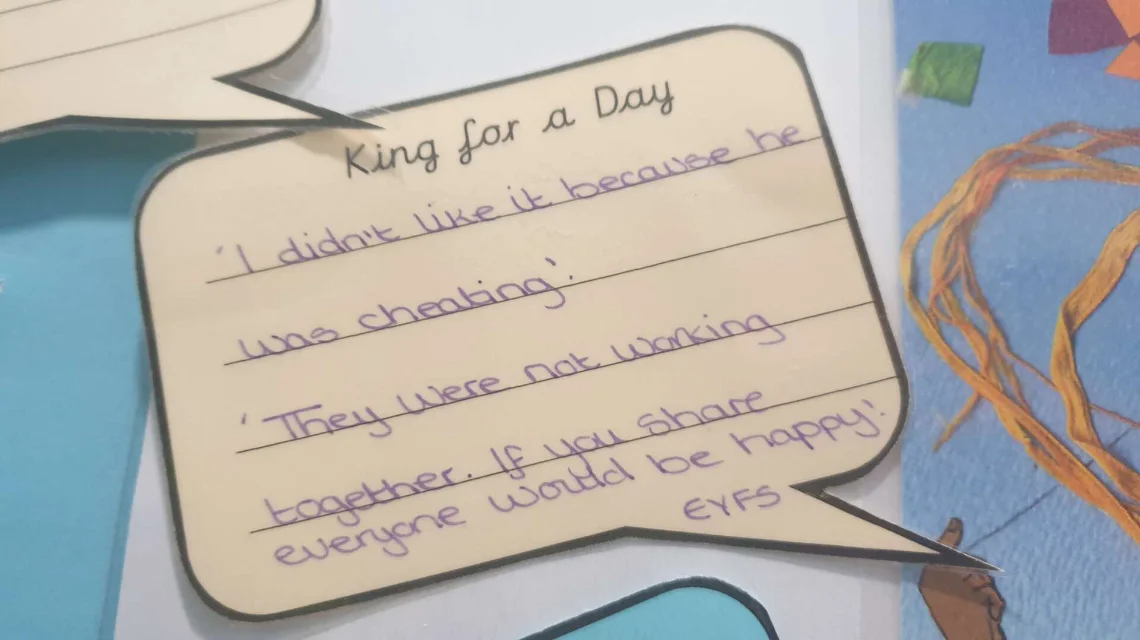 King for a Day
'I didn't like it because he
was cheating'.
'They were not working
together. If you share
everyone would be happy'.
EYFS